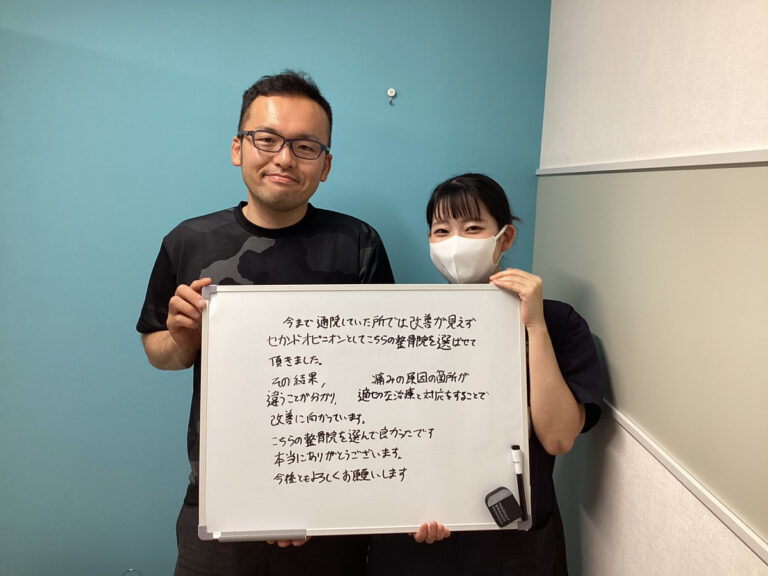 今まで通院していた所では改善が見えず
セカンドオピニオンとしてこちらの整骨院を選ばせて
頂きました。
その結果, 痛みの原因の箇所が
違うことが分かり, 適切な治療と対応をすることで
改善に向かっています。
こちらの整骨院を選んで良かったです
本当にありがとうございます。
今後ともよろしくお願いします